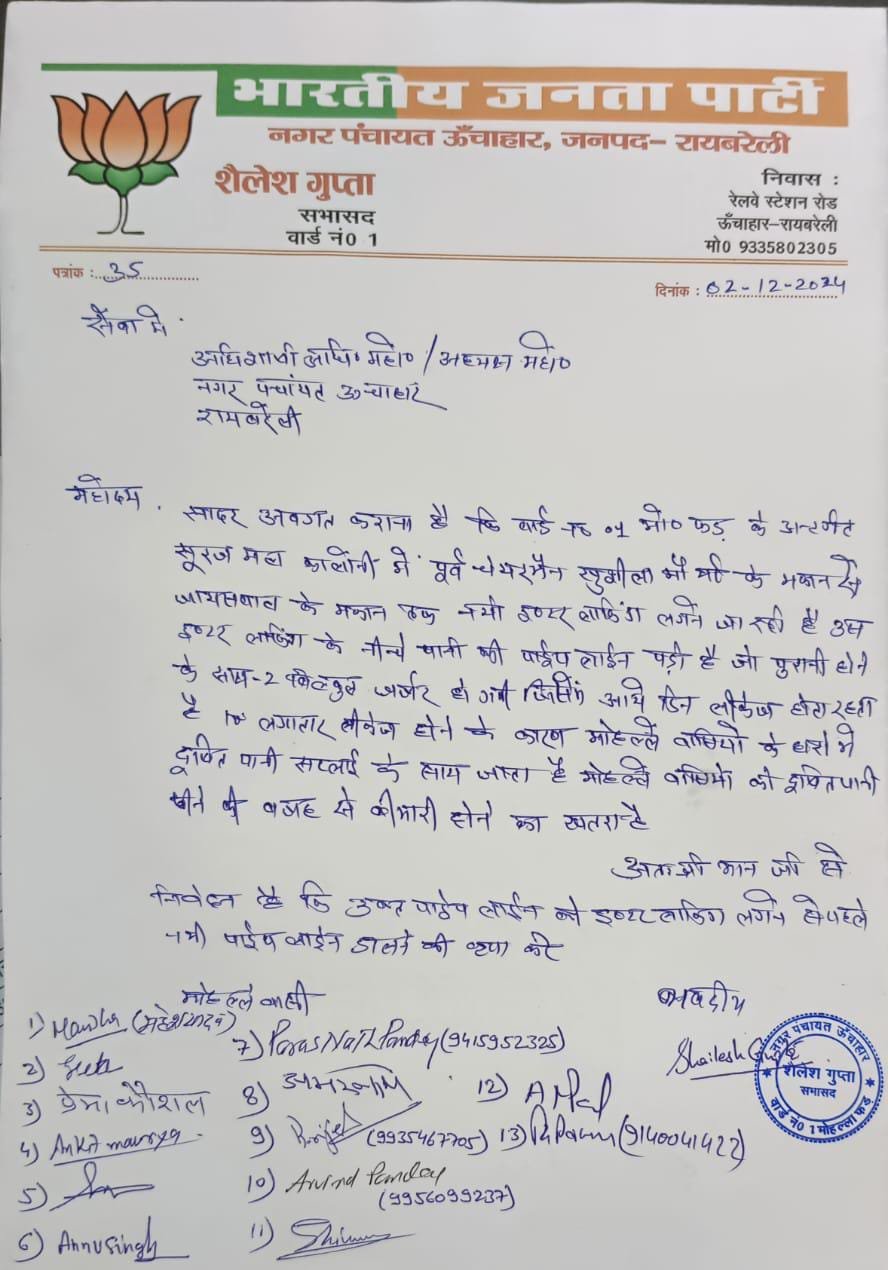 भारतीय जनता पार्टी
नगर पंचायत ऊँचाहार, जनपद– रायबरेली
शैलेश गुप्ता
सभासद
वार्ड नं0 1
निवास :
रेलवे स्टेशन रोड
ऊँचाहार–रायबरेली
मो0 9335802305
पत्रांक : 35
दिनांक : 02-12-2024
सेवा में
अधिशाषी अधि० महो० / अध्यक्ष महो०
नगर पंचायत ऊंचाहार
रायबरेली
महोदय
सादर अवगत कराना है कि वार्ड न० 01 मो० फड़ के अन्तर्गत
सूरज महल कालोनी में पूर्व चेयरमैन सुशीला मौर्या के मकान से
जायसवाल के मकान तक नयी इण्टर लाकिंग लगने जा रही है उस
इण्टर लाकिंग के नीचे पानी की पाईप लाईन पड़ी है जो पुरानी होने
के साथ-2 बिल्कुल जर्जर हो गयी जिसमें आये दिन लीकेज होता रहता
है लगातार लीकेज होने के कारण मोहल्ले वासियो के घरो में
दूषित पानी सप्लाई के साथ जाता है मोहल्ले वासियो को दूषित पानी
पीने की वजह से बीमारी होने का खतरा है
अतः श्री मान जी से
निवेदन है कि उक्त पाईप लाईन को इण्टर लाकिंग लगने से पहले
नयी पाईप लाईन डालने की कृपा करे
मोहल्ले वासी
भवदीय
1) (महेश यादव)
3) प्रेमा कौशल
4) Ankit maurya
5)
6) Annu singh
7) Paras Nath Panday (9415952325)
8) अमरनाथ
9) (9935467705)
10) Arvind Panday
(9956099237)
11)
12)
13) (9140041422)
Shailesh Gupta
नगर पंचायत ऊँचाहार
शैलेश गुप्ता
सभासद
वार्ड नं0 1 मोहल्ला फड़